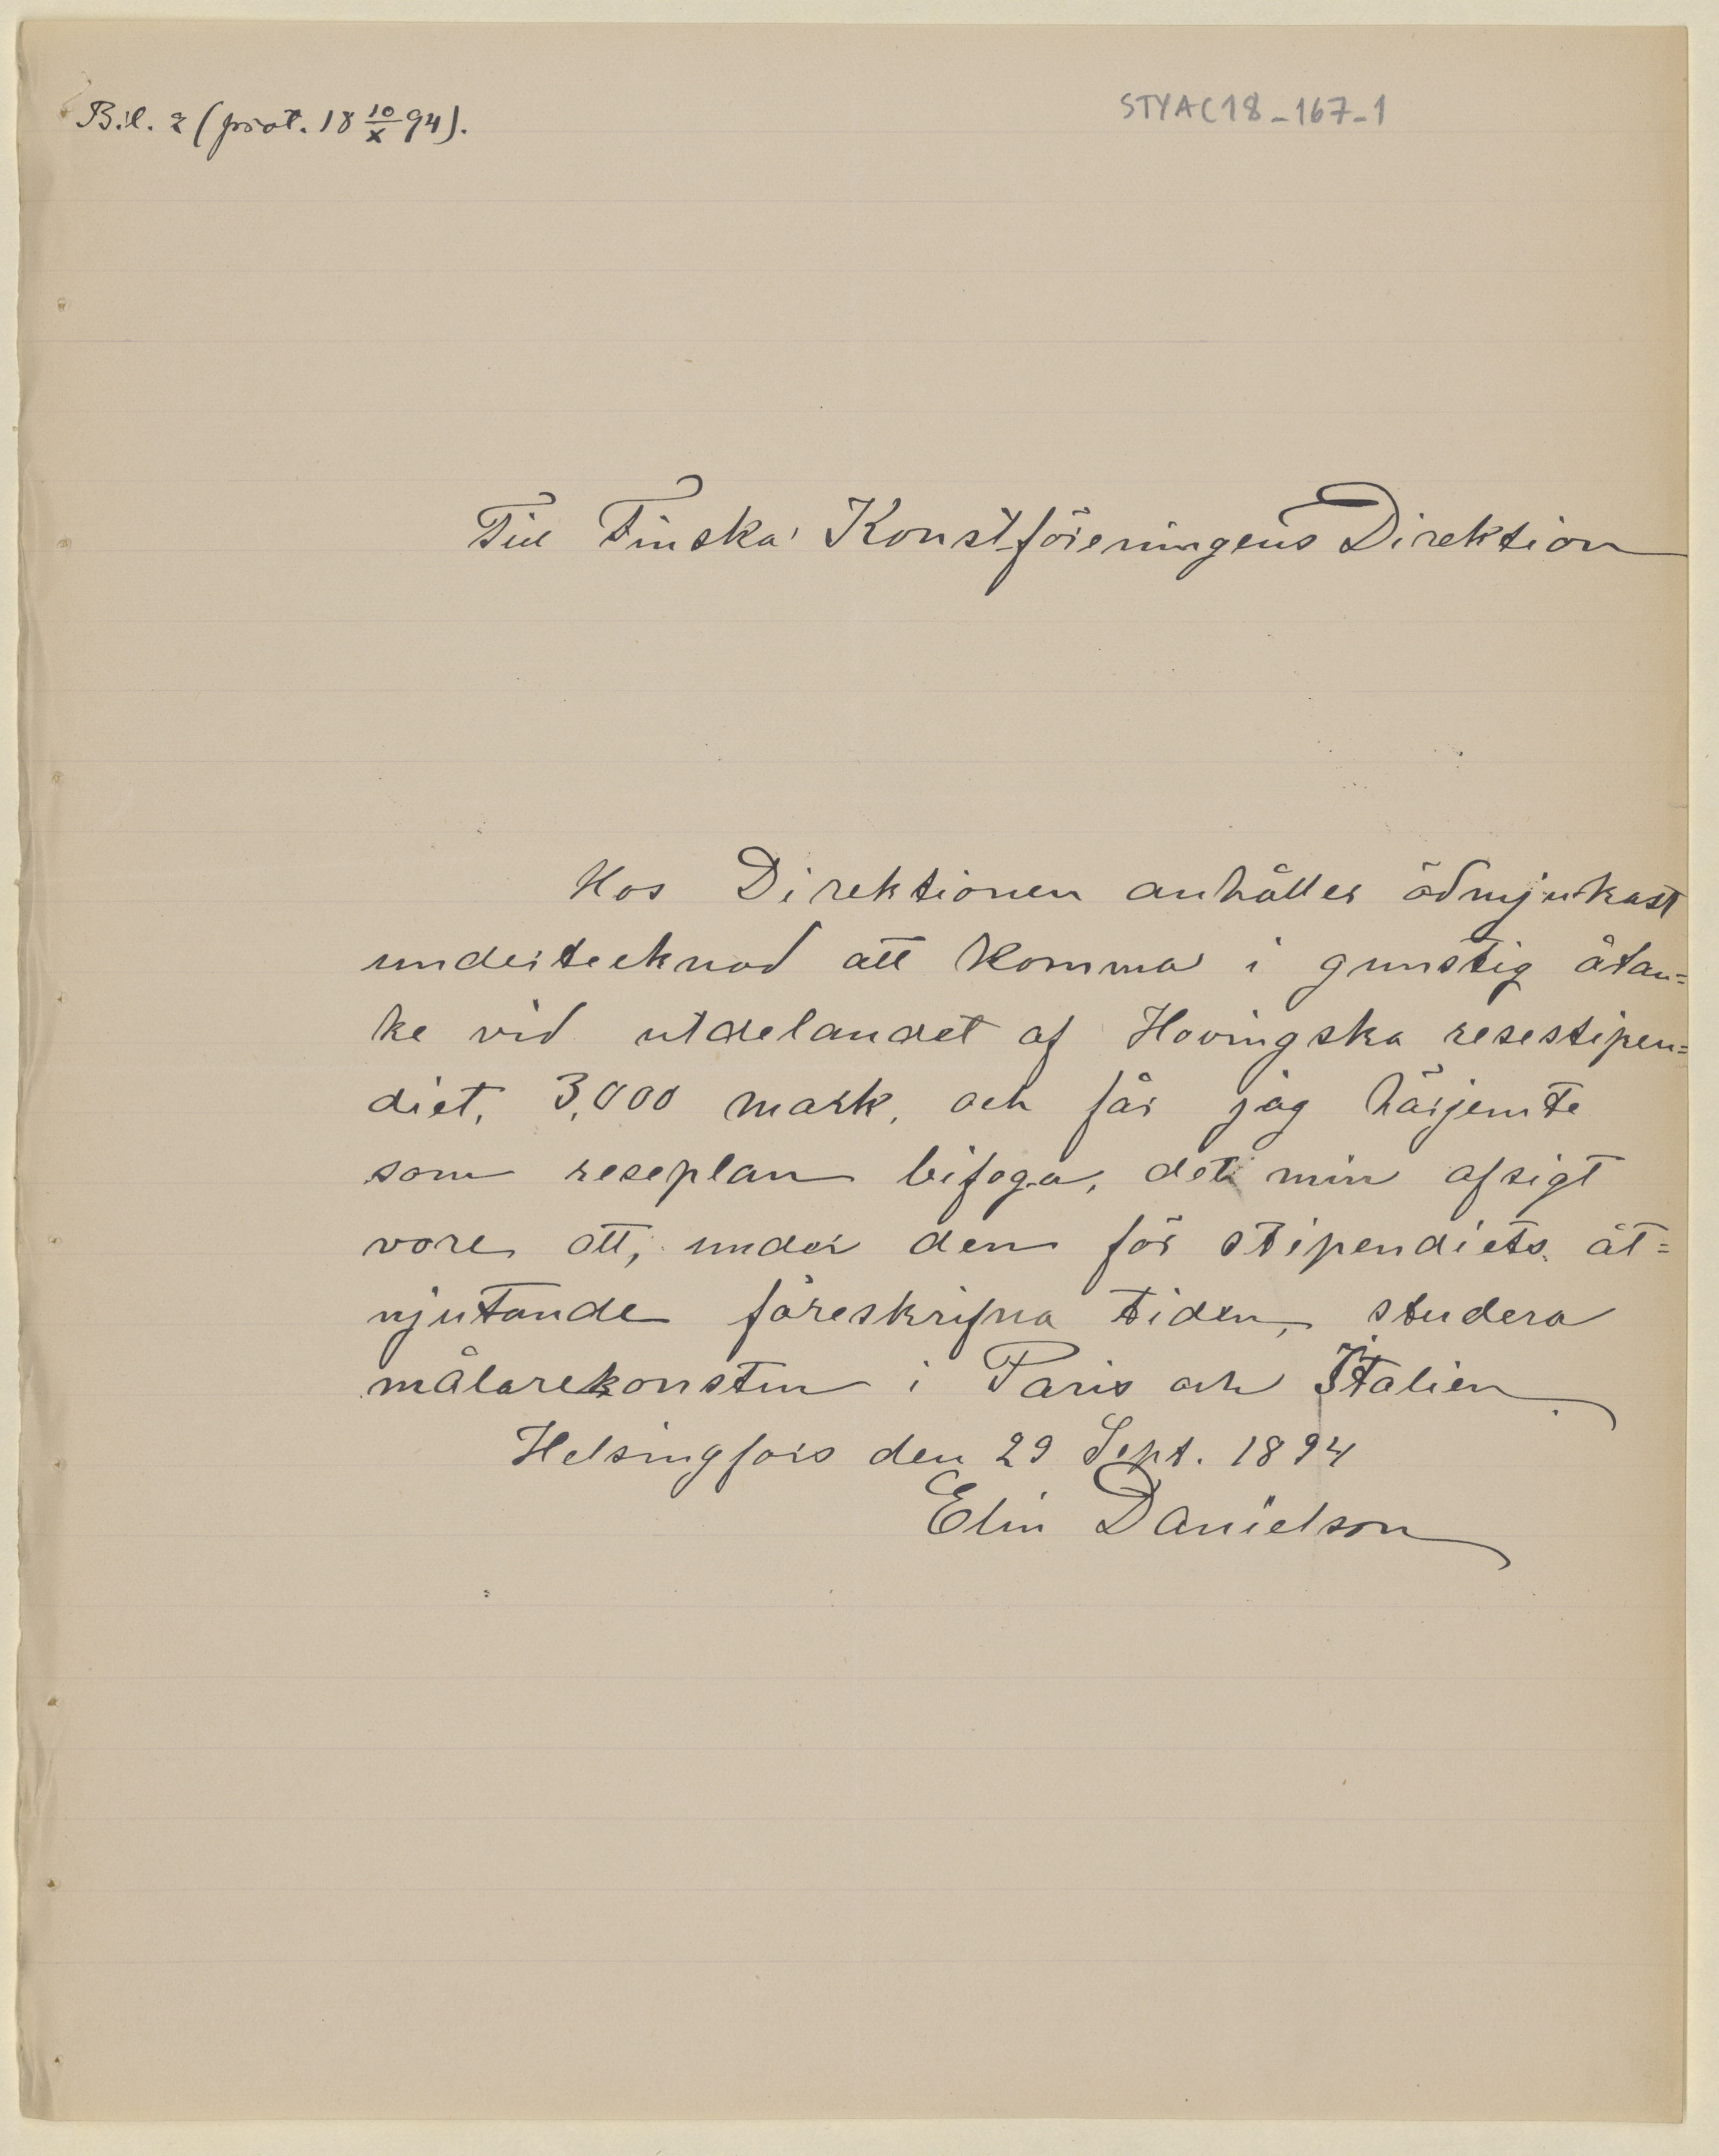 Bil. 2 (prot. 18 10/X 94).
STYA C18_167_1
Till Finska Konstföreningens Direktion
Hos Direktionen anhåller ödmjukast
undertecknad att komma i gunstig åtan=
ke vid utdelandet af Hovingska resestipen=
diet, 3,000 mark, och får jag härjemte
som reseplan bifoga, det min afsigt
vore att, under den för stipendiets åt=
njutande föreskrifna tiden, studera
målarekonsten i Paris och Italien.
Helsingfors den 29 Sept. 1894
Elin Danielson